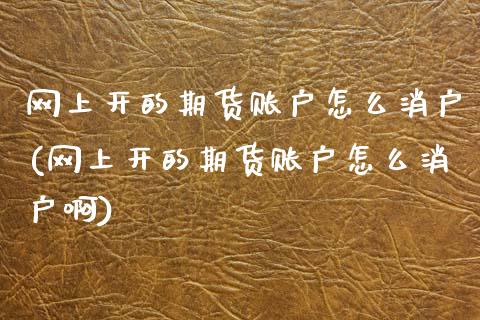 网上开的期货账户怎么消户
(网上开的期货账户怎么消
户啊)